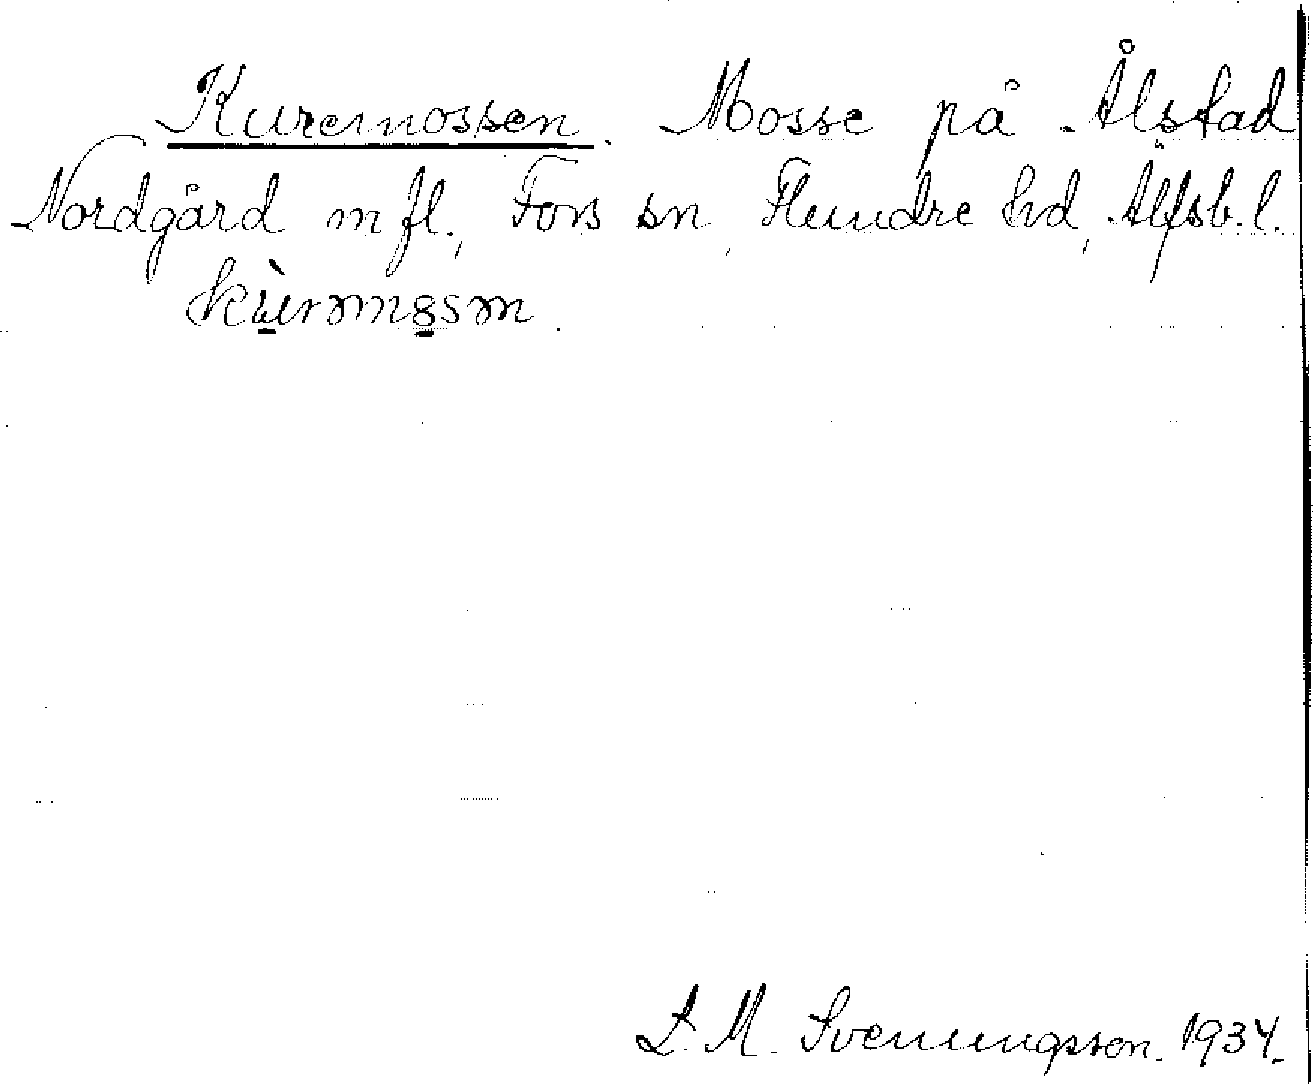 Kuremossen. Mosse på Ålstad
Nordgård m fl., Fors sn, Flundre hd, Älfsb. l.
kùrəmɞsən
L. M. Svenungsson. 1934.